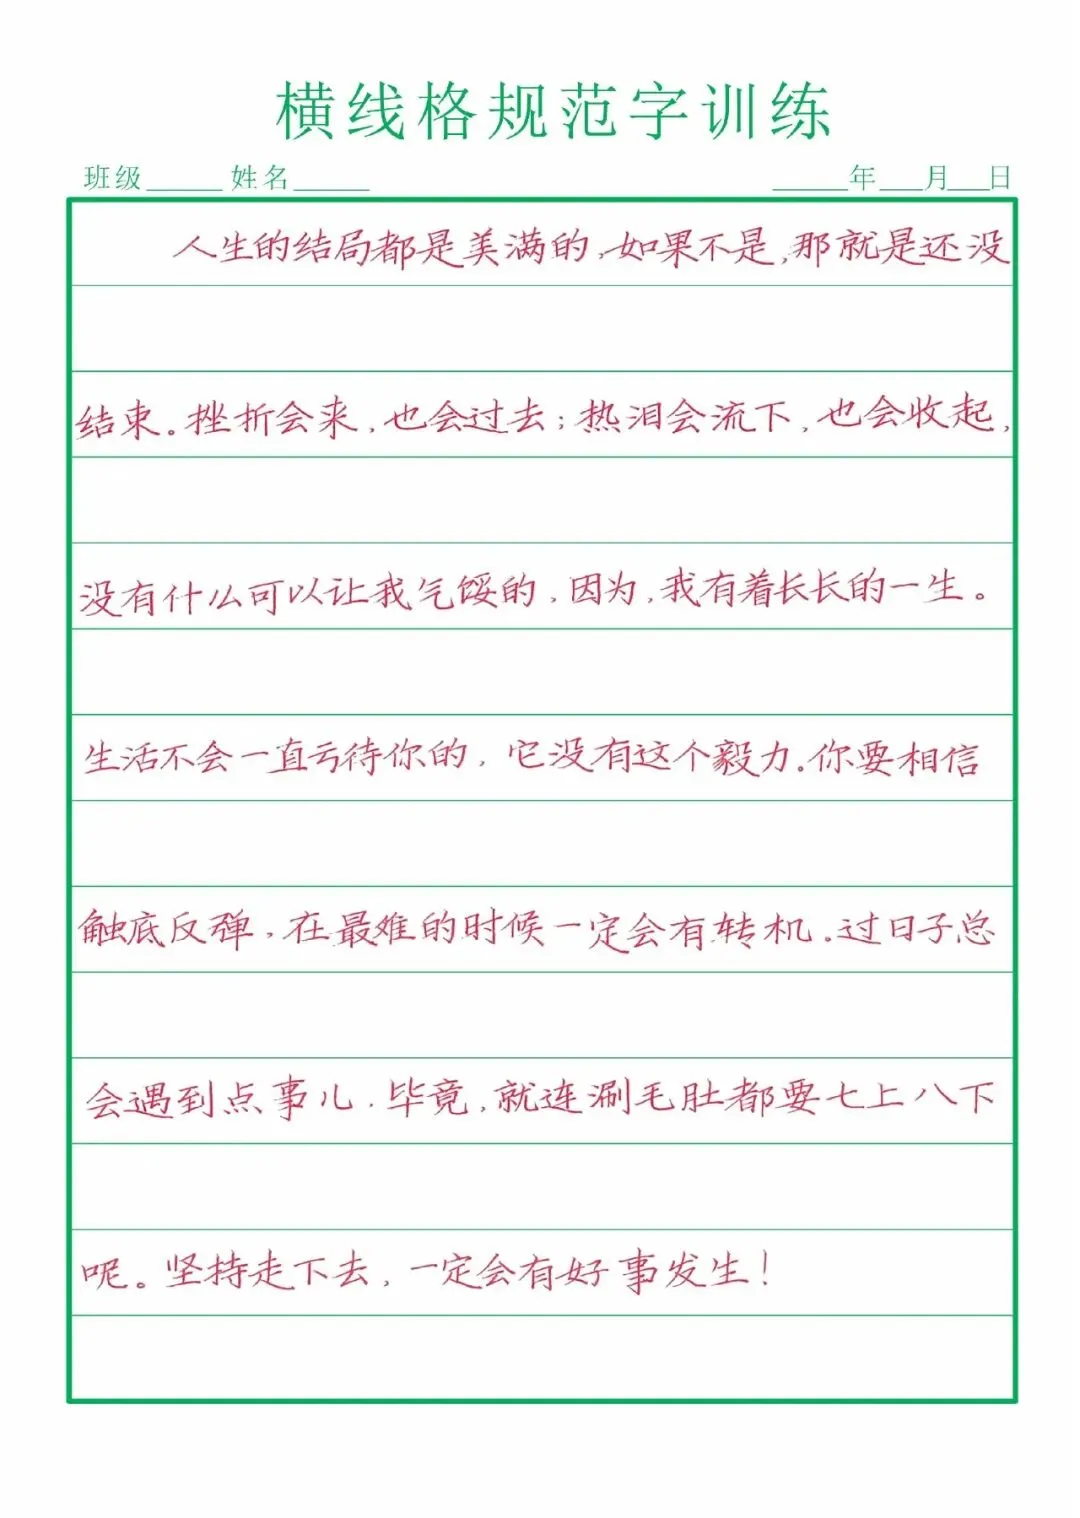 横线格规范字训练
班级______ 姓名______ ______年___月___日
人生的结局都是美满的,如果不是,那就是还没
结束。挫折会来,也会过去;热泪会流下,也会收起,
没有什么可以让我气馁的,因为,我有着长长的一生。
生活不会一直亏待你的,它没有这个毅力。你要相信
触底反弹,在最难的时候一定会有转机。过日子总
会遇到点事儿.毕竟,就连涮毛肚都要七上八下
呢。坚持走下去,一定会有好事发生!